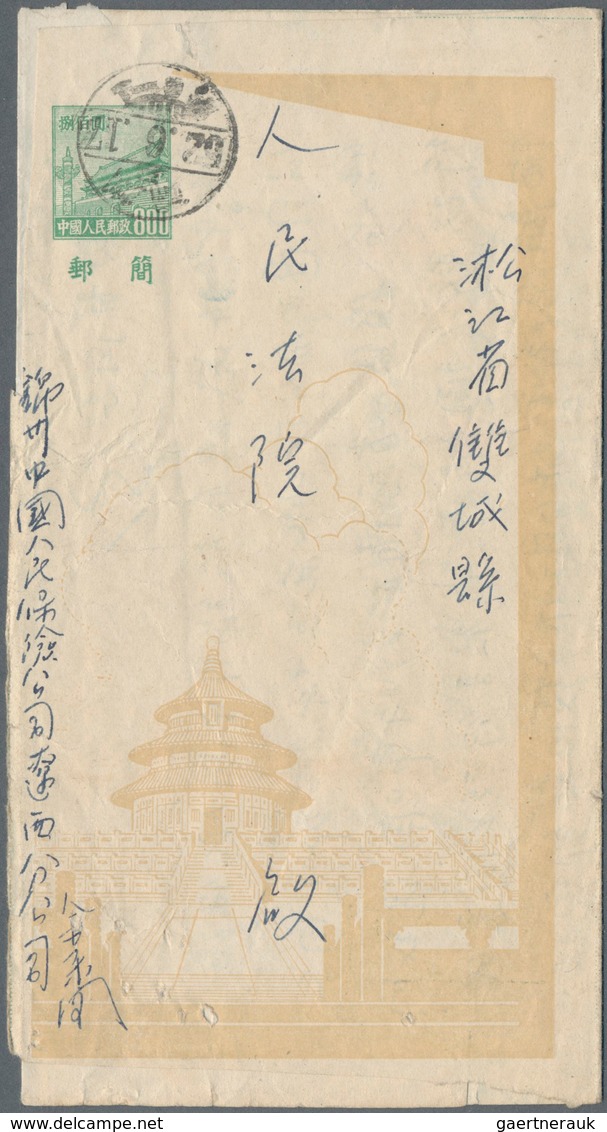 捌佰圓
中國人民郵政 800
郵簡
52.6.17
淞江省雙城縣
人民法院 啟
錦州中國人民保險公司遼西分公司
gaertnerauk